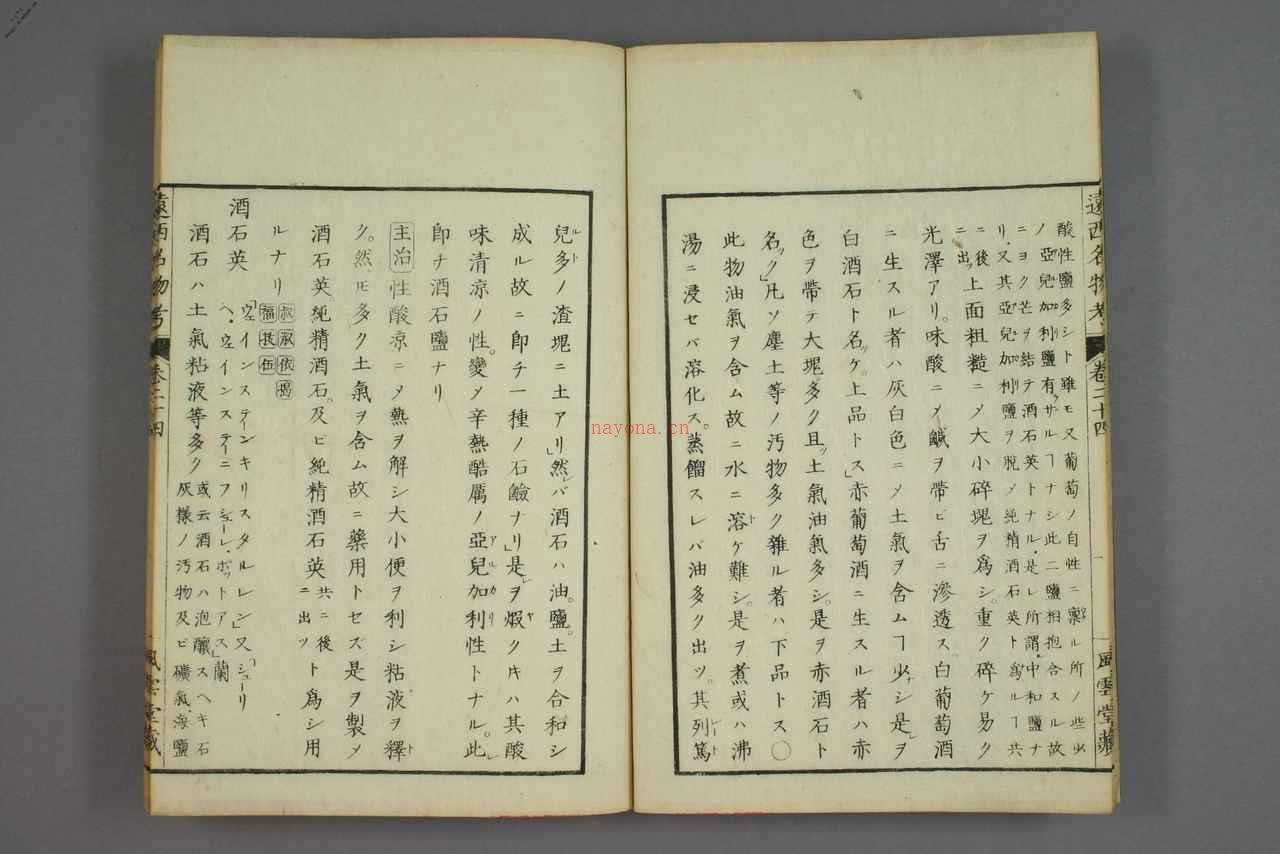 遠西名物考 卷二十四 一 風雲堂藏
酸性鹽多シト雖モ又葡萄ノ自性ニ稟ル所ノ些少
ノ亞兒加利鹽有ザルヿナシ此二鹽相抱合スル故
ニヨク芒ヲ結テ酒石英トナル是レ所謂中和鹽ナ
リ又其亞兒加利鹽ヲ脱乄純精酒石英ト爲ルヿ共
ニ後ニ出ヅ
上面粗糙ニ乄大小碎塊ヲ爲シ重ク碎ケ易ク
光澤アリ味酸ニ乄鹹ヲ帶ビ舌ニ滲透ス白葡萄酒
ニ生スル者ハ灰白色ニ乄土氣ヲ含ムヿ少シ是ヲ
白酒石ト名ク上品トス」赤葡萄酒ニ生スル者ハ赤
色ヲ帶テ大塊多ク且土氣油氣多シ是ヲ赤酒石ト
名ク」凡ソ塵土等ノ汚物多ク雜ル者ハ下品トス〇
此物油氣ヲ含ム故ニ水ニ溶ケ難シ是ヲ煮或ハ沸
湯ニ浸セバ溶化ス蒸餾スレバ油多ク出ツ其列篤
兒多ノ渣塊ニ土アリ」然バ酒石ハ油鹽土ヲ合和シ
成ル故ニ卽チ一種ノ石鹸ナリ」是ヲ煆ク片ハ其酸
味清凉ノ性變乄辛熱酷厲ノ亞兒加利性トナル此
卽チ酒石鹽ナリ
主治 性酸凉ニ乄熱ヲ解シ大小便ヲ利シ粘液ヲ釋
ク然𪜈多ク土氣ヲ含ム故ニ藥用トセズ是ヲ製乄
酒石英純精酒石及ビ純精酒石英共ニ後ニ出ツト爲シ用
ルナリ
酒石英 「ウェインステインキリスタルレン」又「シューリ
ヘ・ウェインステーニフシューレ・ポットアス」蘭
酒石ハ土氣粘液等多ク或云酒石ハ泡釀スヘキ石
灰樣ノ汚物及ビ礦氣海鹽
遠西名物考 卷二十四 風雲堂藏
nayona.cn